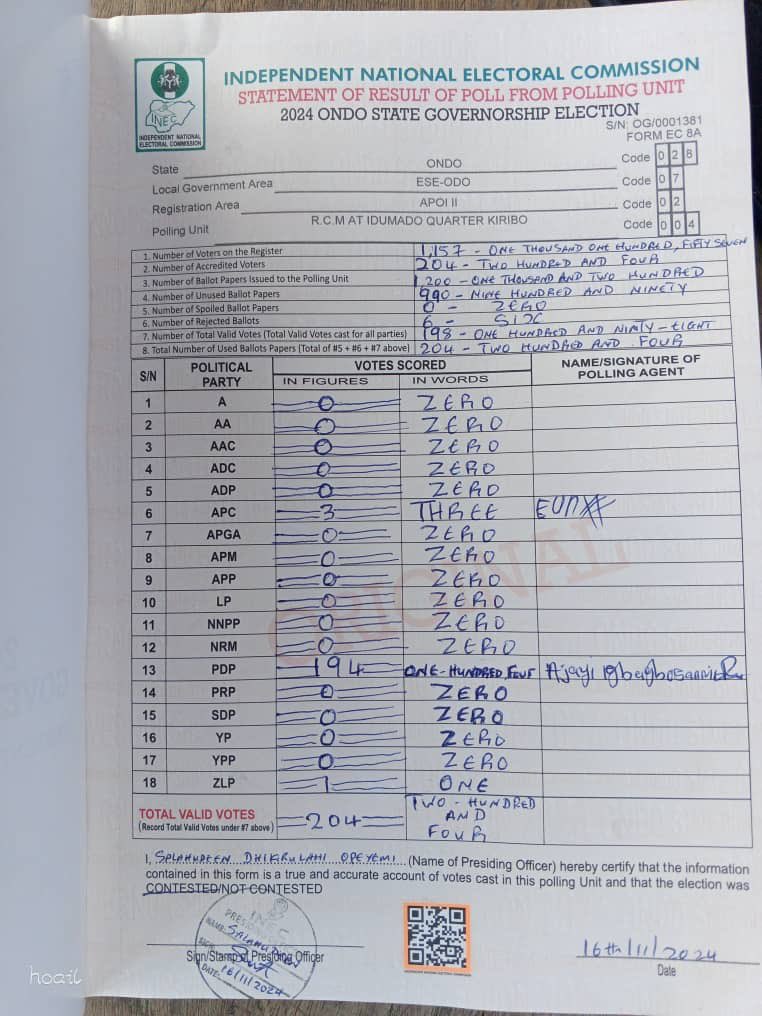 INEC
INDEPENDENT NATIONAL
ELECTORAL COMMISSION
INDEPENDENT NATIONAL ELECTORAL COMMISSION
STATEMENT OF RESULT OF POLL FROM POLLING UNIT
2024 ONDO STATE GOVERNORSHIP ELECTION
S/N: OG/0001381
FORM EC 8A
State ONDO Code 0 2 8
Local Government Area ESE-ODO Code 0 7
Registration Area APOI II Code 0 2
Polling Unit R.C.M AT IDUMADO QUARTER KIRIBO Code 0 0 4
1. Number of Voters on the Register 1,157 - ONE THOUSAND ONE HUNDRED, FIFTY SEVEN
2. Number of Accredited Voters 204 - TWO HUNDRED AND FOUR
3. Number of Ballot Papers Issued to the Polling Unit 1,200 - ONE THOUSAND AND TWO HUNDRED
4. Number of Unused Ballot Papers 990 - NINE HUNDRED AND NINETY
5. Number of Spoiled Ballot Papers 0 - ZERO
6. Number of Rejected Ballots 6 - SIX
7. Number of Total Valid Votes (Total Valid Votes cast for all parties) 198 - ONE HUNDRED AND NINTY-EIGHT
8. Total Number of Used Ballots Papers (Total of #5 + #6 + #7 above) 204 - TWO HUNDRED AND FOUR
S/N POLITICAL PARTY VOTES SCORED NAME/SIGNATURE OF POLLING AGENT
IN FIGURES IN WORDS
1 A 0 ZERO
2 AA 0 ZERO
3 AAC 0 ZERO
4 ADC 0 ZERO
5 ADP 0 ZERO
6 APC 3 THREE
7 APGA 0 ZERO
8 APM 0 ZERO
9 APP 0 ZERO
10 LP 0 ZERO
11 NNPP 0 ZERO
12 NRM 0 ZERO
13 PDP 194 ONE-HUNDRED, Ajayi
14 PRP 0 ZERO
15 SDP 0 ZERO
16 YP 0 ZERO
17 YPP 0 ZERO
18 ZLP 1 ONE
ORIGINAL
TOTAL VALID VOTES
(Record Total Valid Votes under #7 above) =204= TWO-HUNDRED
AND
FOUR
I, SALAHUDEEN DHIKRULAHI OPEYEMI (Name of Presiding Officer) hereby certify that the information
contained in this form is a true and accurate account of votes cast in this polling Unit and that the election was
CONTESTED/NOT CONTESTED
INEC
NAME: SALAHUDEEN
SIGN:
DATE: 16/11/2024
Sign/Stamp of Presiding Officer
16th/11/2024
Date